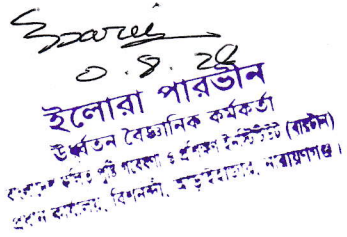 ইলোরা পারভীন
উর্ধ্বতন বৈজ্ঞানিক কর্মকর্তা
বাংলাদেশ ফলিত পুষ্টি গবেষণা ও প্রশিক্ষণ ইনস্টিটিউট (বারটান)
প্রধান কার্যালয়, বিশনন্দী, আড়াইহাজার, নারায়ণগঞ্জ।